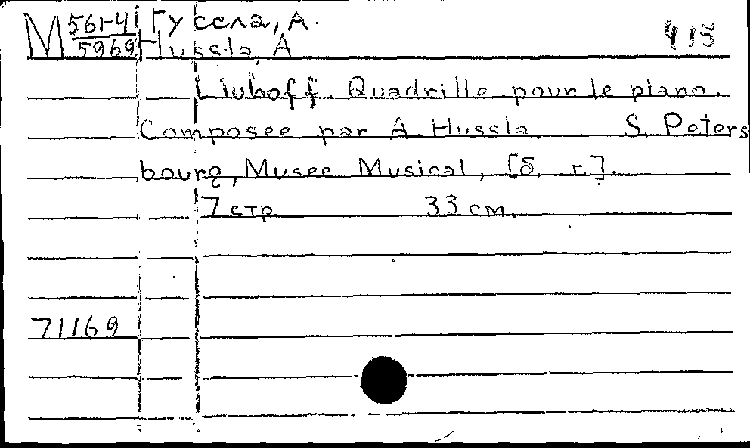 М 561-4 Гуссла, А. 415
5969 Hussla, A
Liuboff. Quadrille pour le piano.
Composee par A Hussla S. Peters
bourg, Musee Musical, [б. г.].
7 стр 33 см.
71169